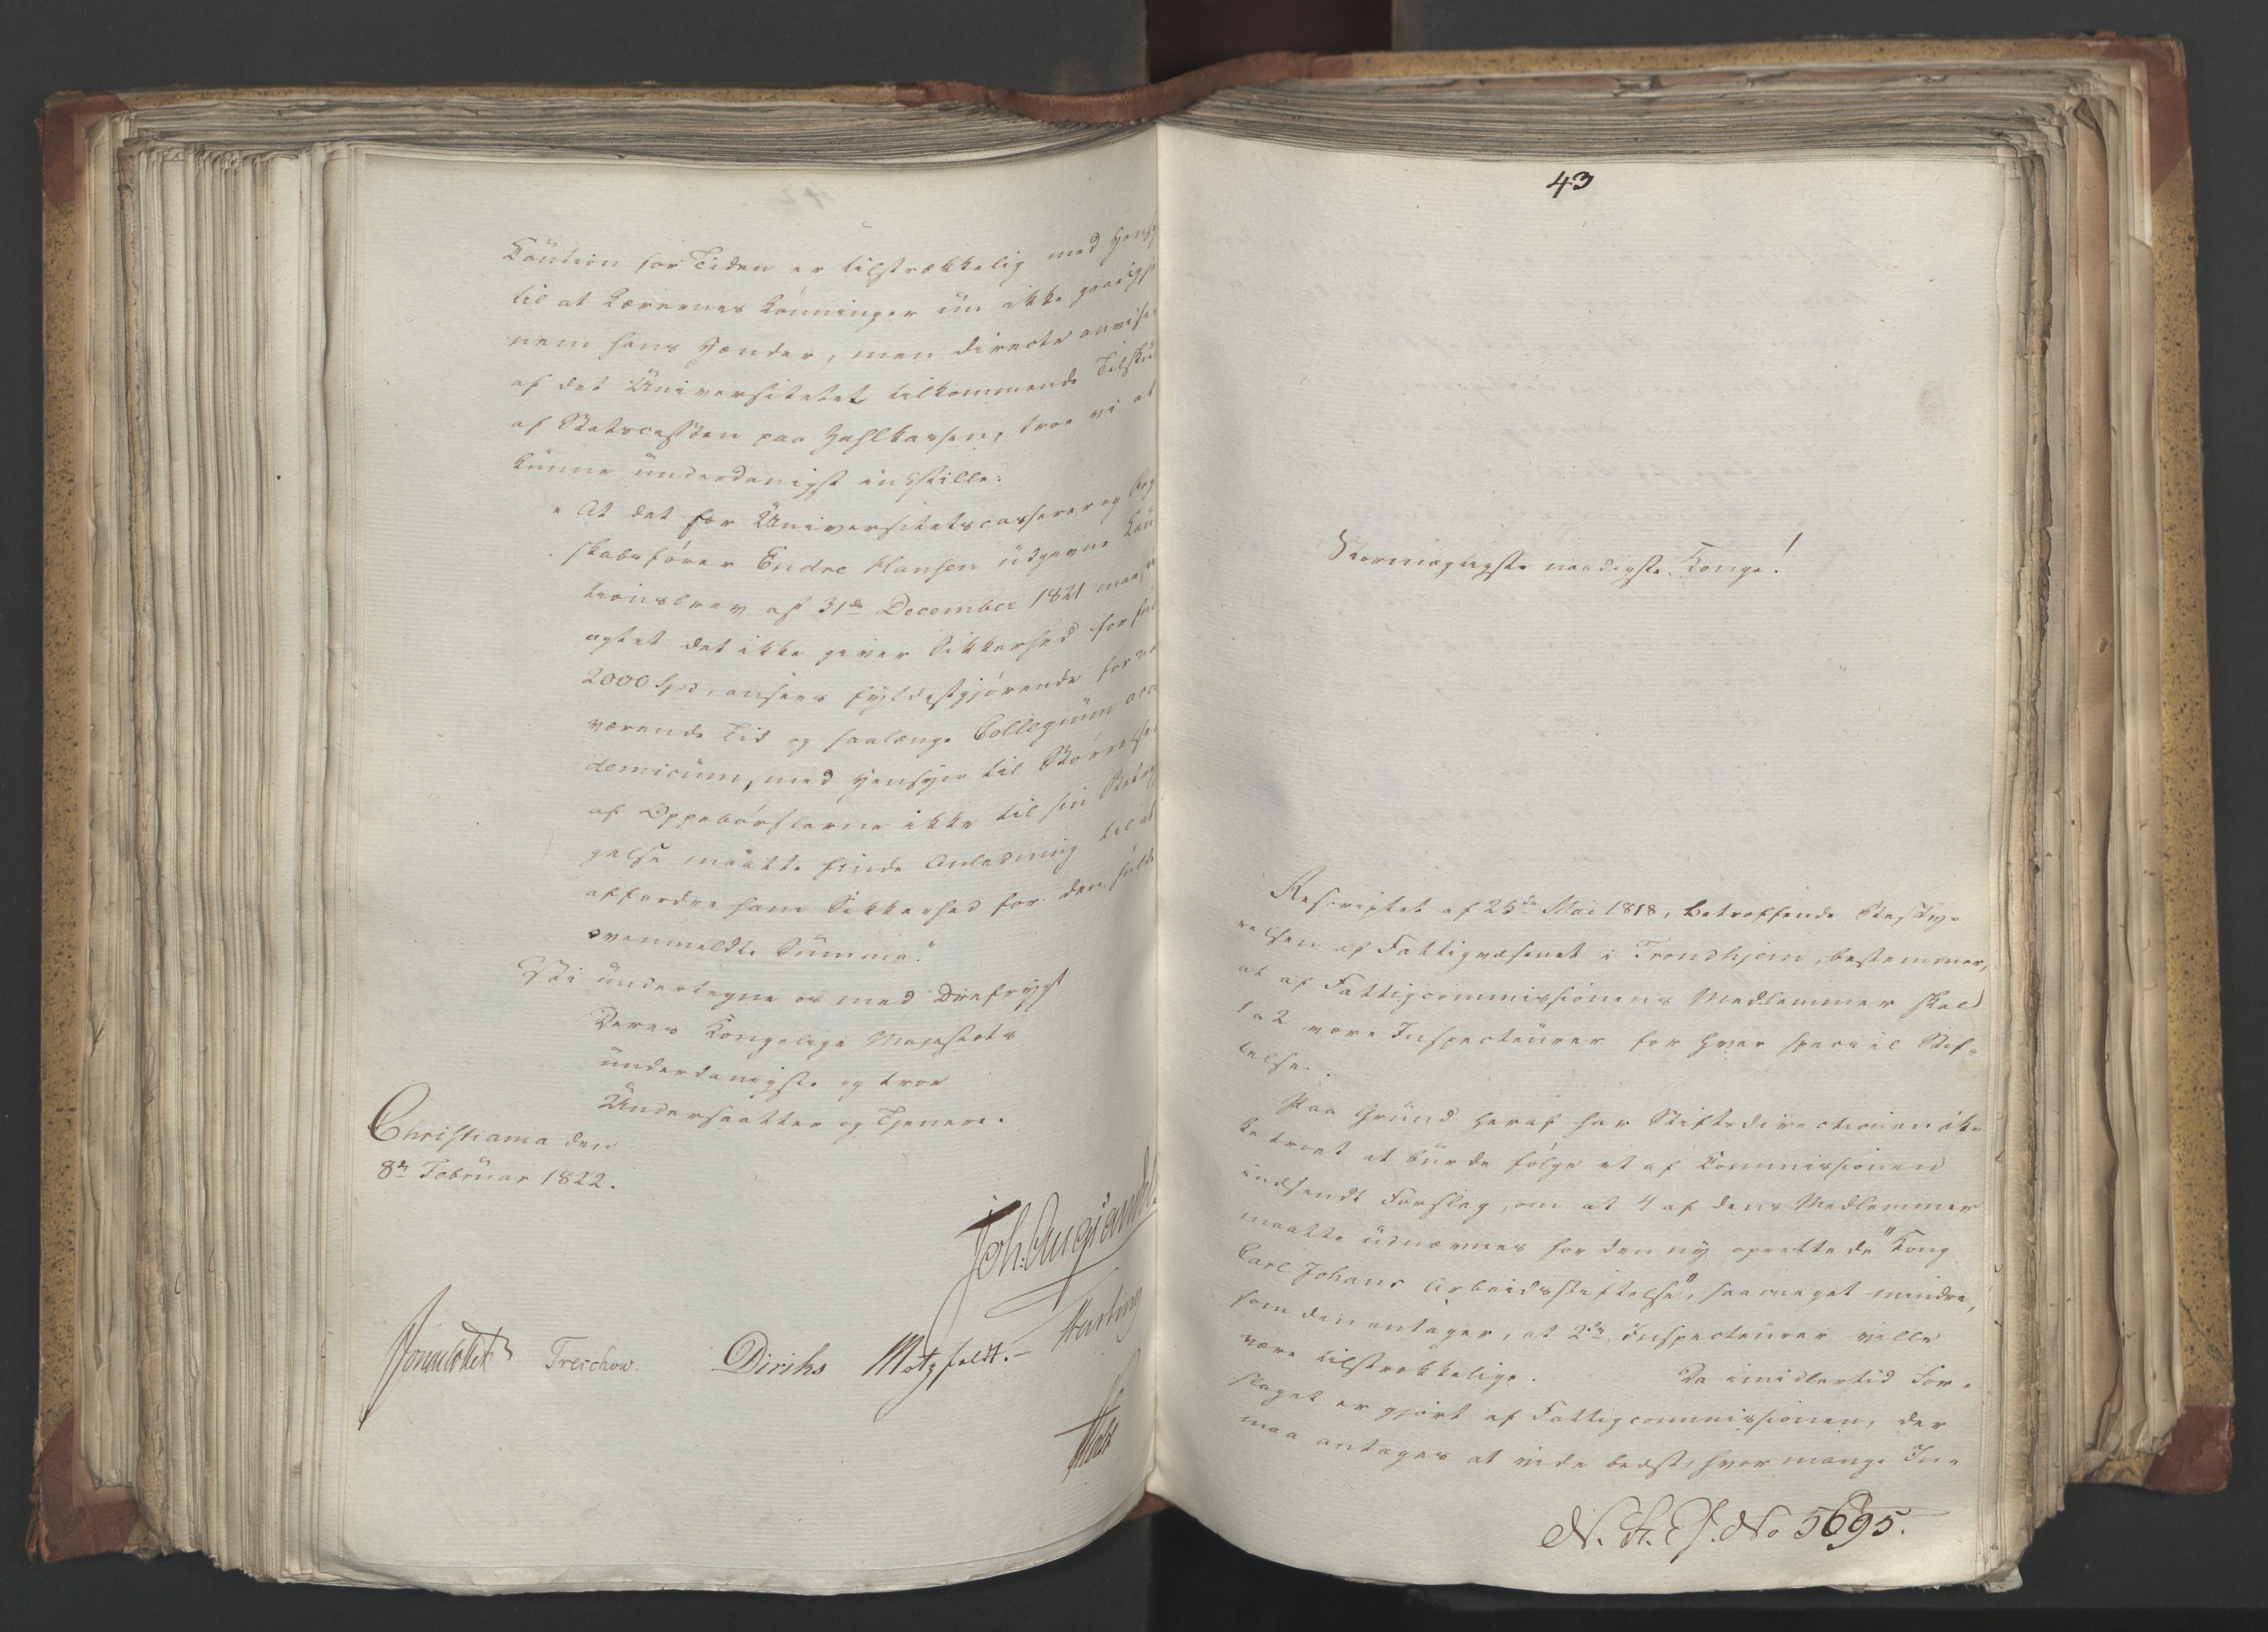 Caution for Tiden er tilstrækkelig med Hensy
til at Lærernes Lønninger nu ikke gaae igje
nem hans Hænder, men directe anvises
af det Universitetet tilkommende Tilskud
af Statscassen paa Zahlkassen, troe vi at
kunne underdanigst indstille:
"At det for Universitetscasserer og Reg
skabsfører Endre Hansen udgivne Cau
tionsbrev af 31de December 1821 maa, u
agtet det ikke giver Sikkerhed for fulde
2000 Spd, ansees fyldestgjørende for nu
værende Tid og saalænge Collegium aca
demicum, med Hensyn til Størrelsen
af Oppebørslerne ikke til sin
gelse maatte finde Anledning til at
affordre ham Sikkerhed for den fulde
ovenmeldte Summa."
Vi undertegne os med Dybefrygt
Deres Kongelige Majestæts
underdanigste og troe
Undersaatter og Tjenere.
Christiania den
8de Februar 1822.
Treschow. Diriks Motzfeldt.
Holst
43
Stormægtigste naadigste Konge!
Rescriptet af 25de Mai 1818, betræffende Besty-
relsen af Fattigvæsenet i Trondhjem, bestemmer,
at af Fattigcommissionens Medlemmer skal
1 a 2 være Inspecteurer for hver speciel Stif-
telse.
Paa Grund heraf har Stiftsdirectionen ik-
ke troet at burde følge et af Commissionen
indsendt Forslag, om at 4 af dens Medlemmer
maatte udnævnes for den ny oprettede "Kong
Carl Johans Arbeidsstiftelse", saa meget mindre,
som den antager, at 2de Inspecteurer ville
være tilstrækkelige. Da imidlertid For-
slaget er gjort af Fattigcommissionen, der
maa antages at vide bedst, hvor mange In-
No 5695.